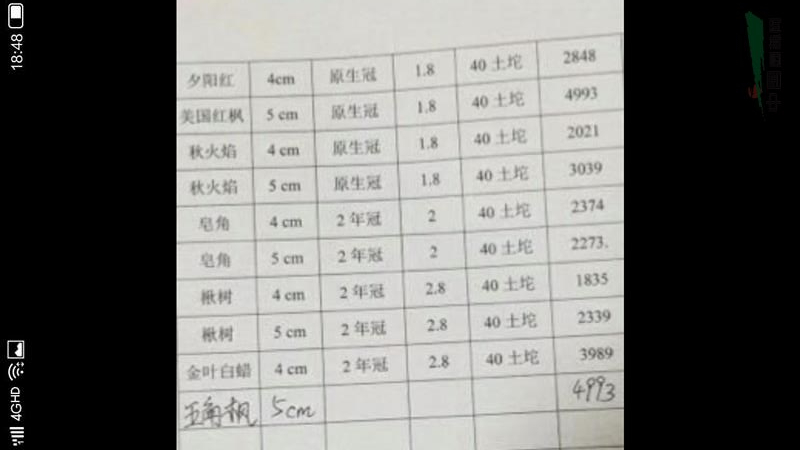 18:48
夕阳红 4cm 原生冠 1.8 40 土坨 2848
美国红枫 5 cm 原生冠 1.8 40 土坨 4993
秋火焰 4 cm 原生冠 1.8 40 土坨 2021
秋火焰 5 cm 原生冠 1.8 40 土坨 3039
皂角 4 cm 2 年冠 2 40 土坨 2374
皂角 5 cm 2 年冠 2 40 土坨 2273.
楸树 4 cm 2 年冠 2.8 40 土坨 1835
楸树 5 cm 2 年冠 2.8 40 土坨 2339
金叶白蜡 4 cm 2 年冠 2.8 40 土坨 3989
五角枫 5cm 4993
4GHD